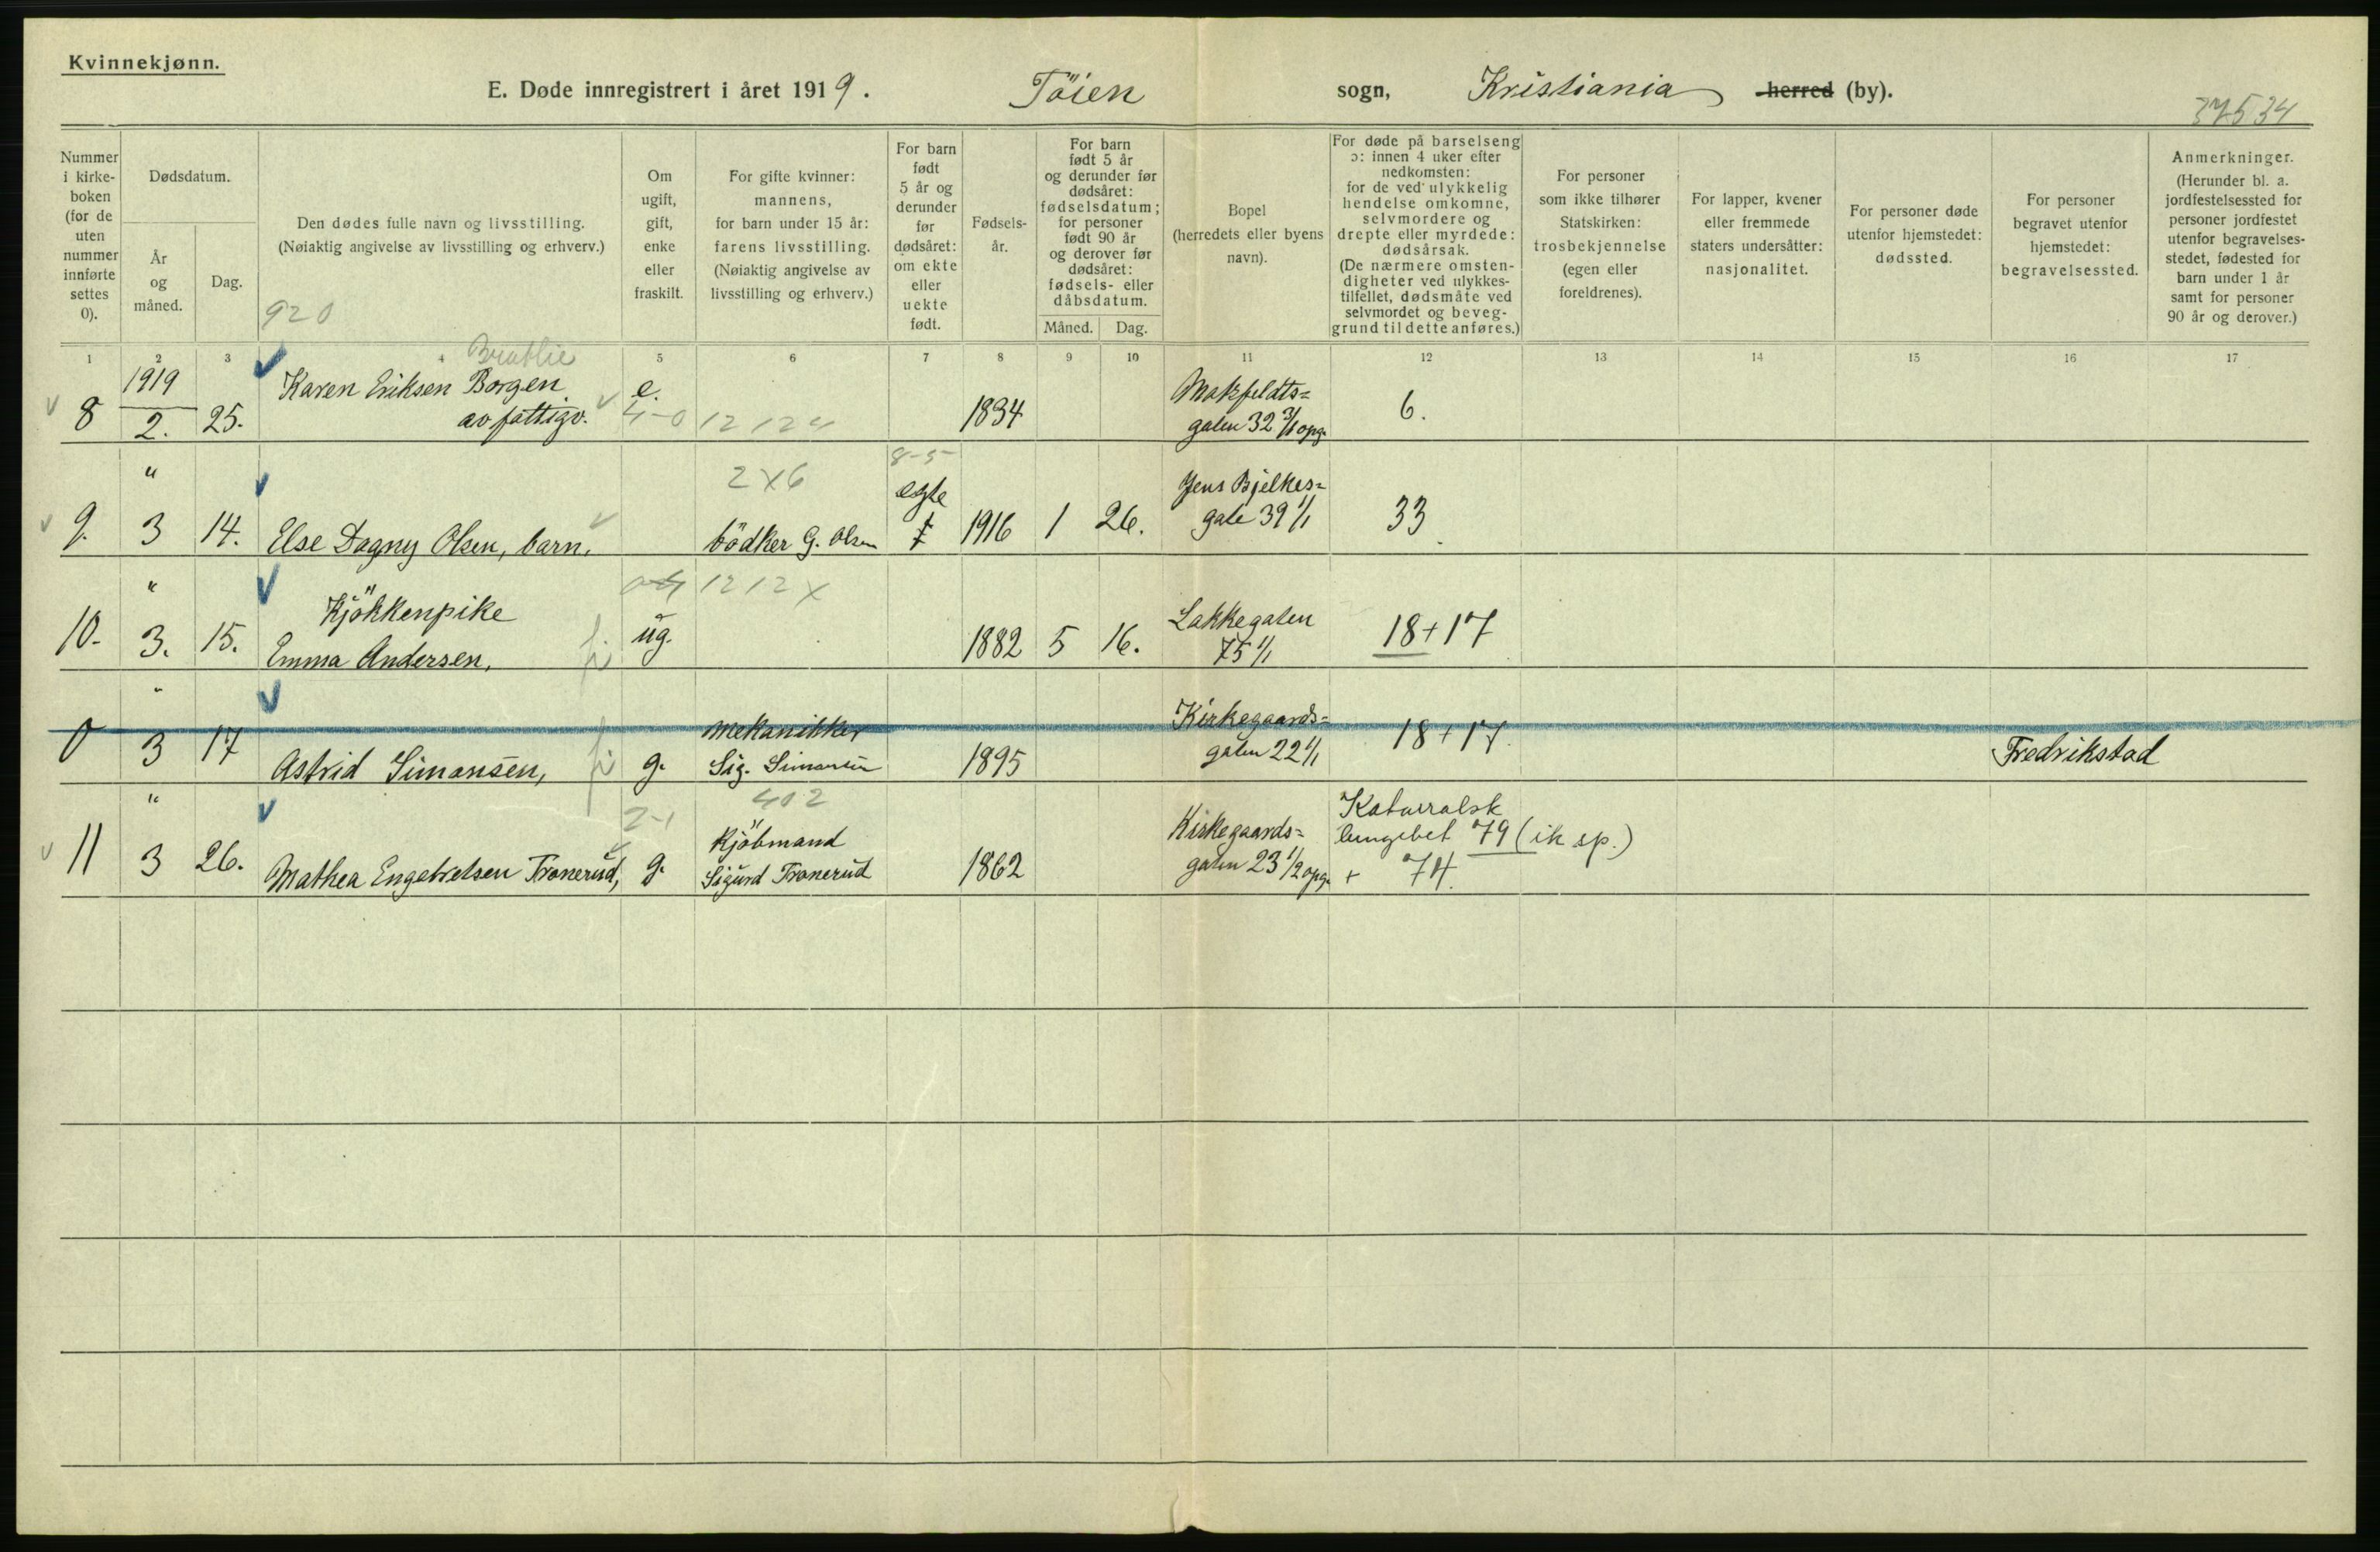 Kvinnekjønn.
E. Døde innregistrert i året 1919. Töien sogn, Kristiania herred (by).
37534
Nummer i kirkeboken (for de uten nummer innførte settes 0).
Dødsdatum.
År og måned.
Dag.
Den dødes fulle navn og livsstilling.
(Nøiaktig angivelse av livsstilling og erhverv.)
920
Om ugift, gift, enke eller fraskilt.
For gifte kvinner: mannens, for barn under 15 år: farens livsstilling. (Nøiaktig angivelse av livsstilling og erhverv.)
For barn født 5 år og derunder før dødsåret: om ekte eller uekte født.
Fødselsår.
For barn født 5 år og derunder før dødsåret: fødselsdatum; for personer født 90 år og derover før dødsåret: fødsels- eller dåbsdatum.
Måned. Dag.
Bopel (herredets eller byens navn).
For døde på barselseng ɔ: innen 4 uker efter nedkomsten: for de ved ulykkelig hendelse omkomne, selvmordere og drepte eller myrdede: dødsårsak. (De nærmere omstendigheter ved ulykkestilfellet, dødsmåte ved selvmordet og beveggrund til dette anføres.)
For personer som ikke tilhører Statskirken: trosbekjennelse (egen eller foreldrenes).
For lapper, kvener eller fremmede staters undersåtter: nasjonalitet.
For personer døde utenfor hjemstedet: dødssted.
For personer begravet utenfor hjemstedet: begravelsessted.
Anmerkninger. (Herunder bl. a. jordfestelsessted for personer jordfestet utenfor begravelsesstedet, fødested for barn under 1 år samt for personer 90 år og derover.)
1 2 3 4 5 6 7 8 9 10 11 12 13 14 15 16 17
Bratlie
1919 Karen Eriksen Borgen e. Makfeldts=
8 2. 25. av fattigv. 4-0 12124 1834 galen 32 3/1 opg. 6.
" 2x6 8-5
egte Jens Bjelkes=
9. 3 14. Else Dagny Olsen, barn. bödker G. Olsen 1916 1 26. gate 39 1/1 33
" 1212x
Kjökkenpike Lakkegaten
10. 3. 15. Emma Andersen, ug. 1882 5 16. 75 1/1 18+17
" mekanikker Kirkegaards=
0 3 17 Astrid Simonsen, g. Sig. Simonsen 1895 galen 22 1/1 18+17. Fredrikstad
" 2-1 402 Katarralsk
Kjöbmand Kirkegaards= lungebet 79 (ik sp.)
11 3 26. Mathea Engebretsen Tronerud, g. Sigurd Tronerud 1862 galen 23 1/2 opg. + 74.